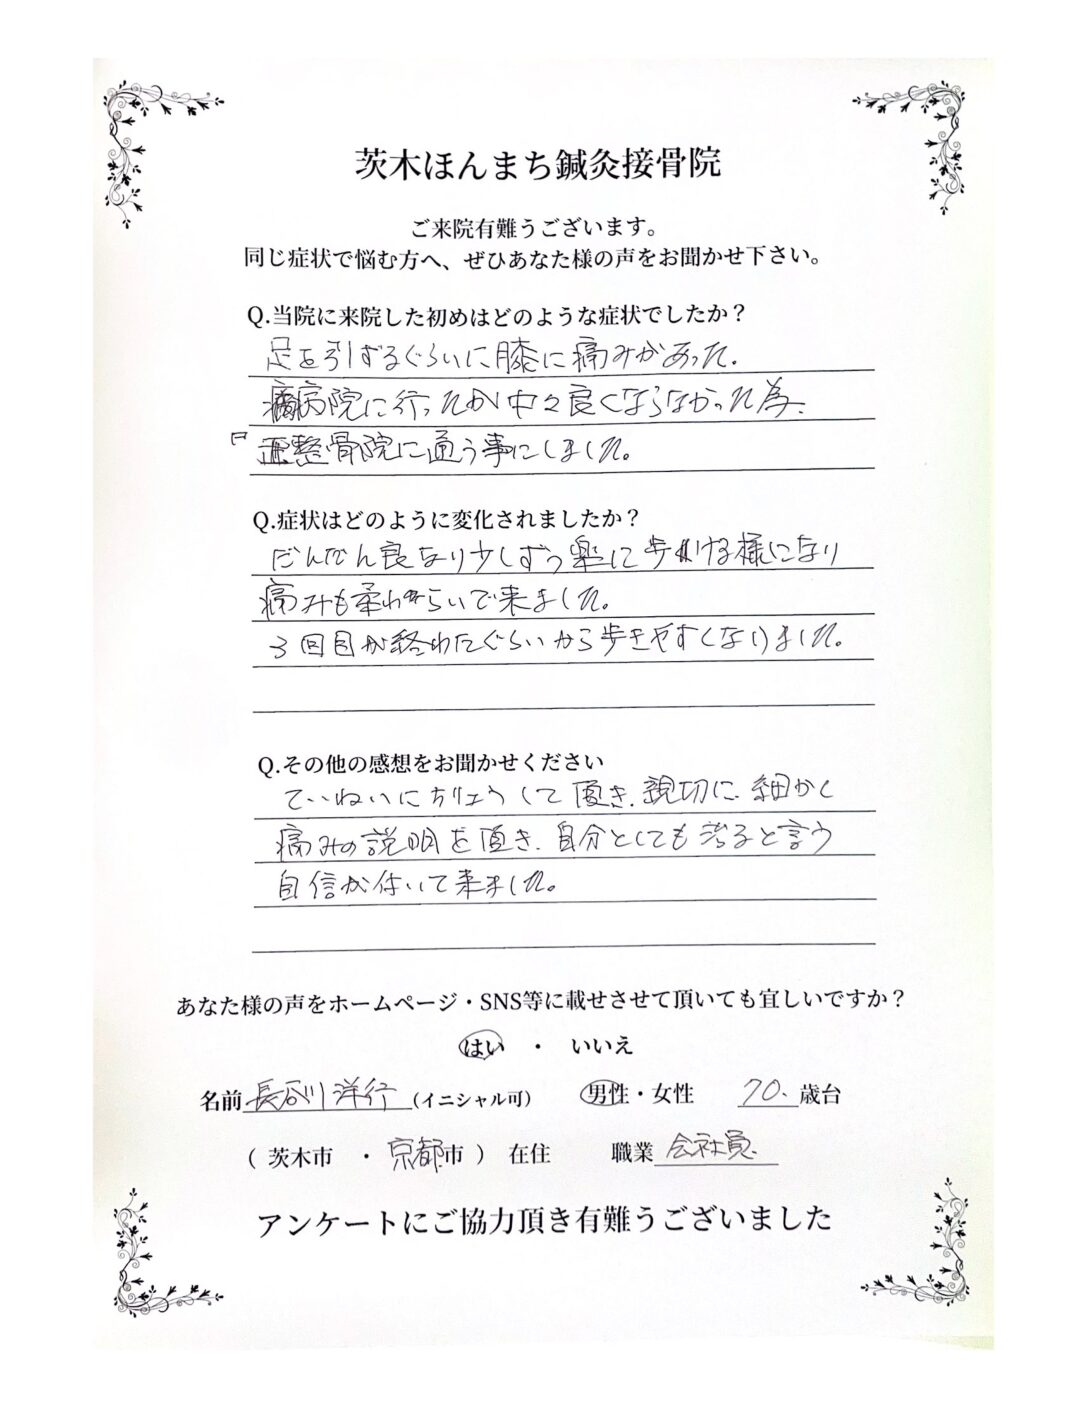 茨木ほんまち鍼灸接骨院
ご来院有難うございます。
同じ症状で悩む方へ、ぜひあなた様の声をお聞かせ下さい。
Q.当院に来院した初めはどのような症状でしたか？
足を引ずるぐらいに膝に痛みがあった。
病院に行ったが中々良くならなかった為、
整骨院に通う事にしました。
Q.症状はどのように変化されましたか？
だんだん良なり少しずつ楽に歩ける様になり
痛みも柔わらいで来ました。
3回目が終わたぐらいから歩きやすくなりました。
Q.その他の感想をお聞かせください
ていねいにちりょうして頂き、親切に、細かく
痛みの説明を頂き、自分としても治ると言う
自信が付いて来ました。
あなた様の声をホームページ・SNS等に載せさせて頂いても宜しいですか？
はい ・ いいえ
名前 長谷川 洋行 (イニシャル可) 男性・女性 70. 歳台
( 茨木市 ・ 京都市 ) 在住 職業 会社員
アンケートにご協力頂き有難うございました